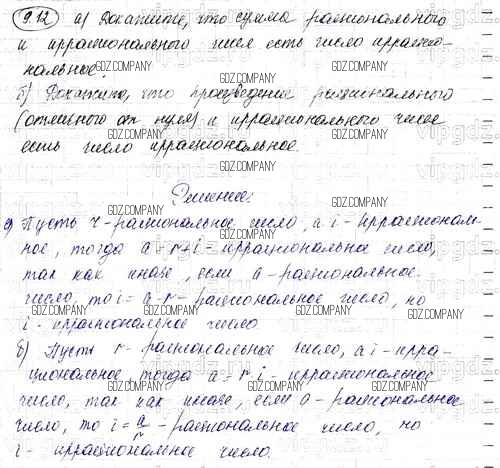 9.12 а) Докажите, что сумма рационального
и иррационального чисел есть число иррацио-
нальное.
б) Докажите, что произведение рационального
(отличного от нуля) и иррационального чисел
есть число иррациональное.
Решение:
а) Пусть r - рациональное число, а i - иррациональ-
ное, тогда a = r + i - иррациональное число,
так как иначе, если a - рациональное
число, то i = a - r - рациональное число, но
i - иррациональное число
б) Пусть r - рациональное число, а i - ирра-
циональное тогда a = r · i - иррациональное
число, так как иначе, если a - рациональное
число, то i = a/r - рациональное число, но
i - иррациональное число.
GDZ.COMPANY
vipgdz